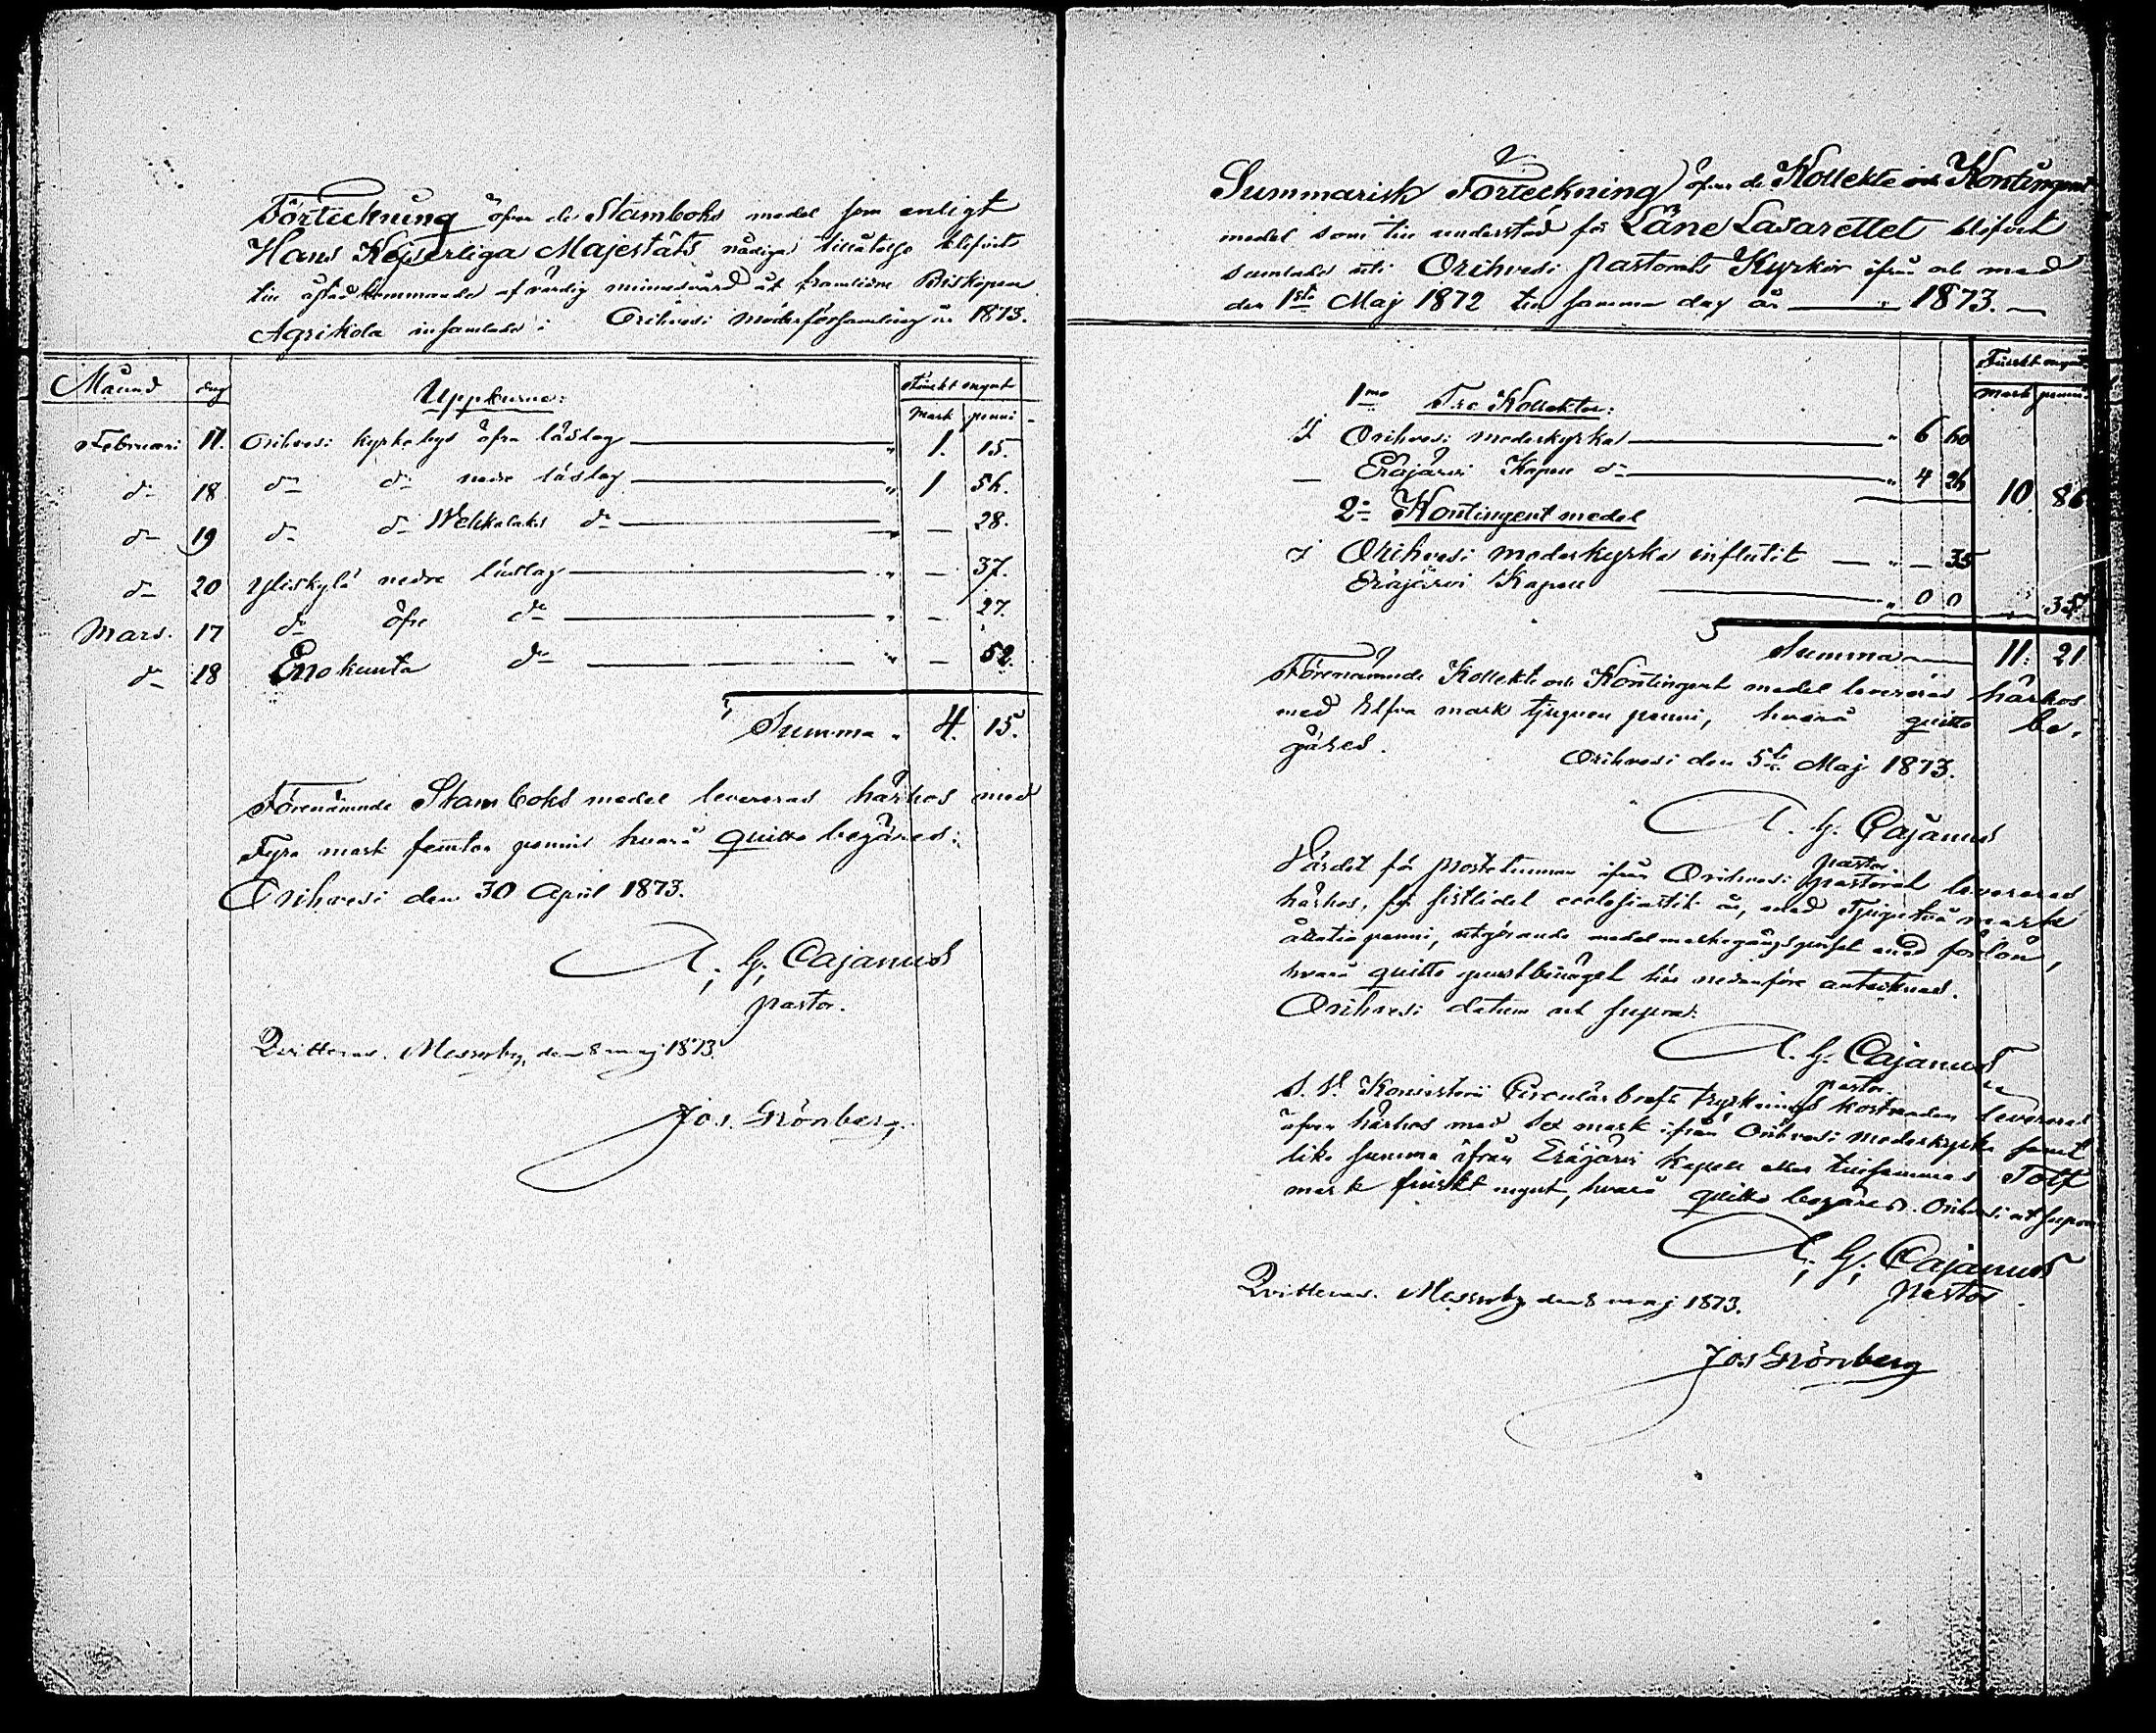 Förteckning öfver de Stamboks medel som enligt
Hans Kejserliga Majestäts nådiga tillåtelse blifvit
till åstadkommande af värdig minnesvård åt framlidne Biskopen
Agrikola insamlade i Orihvesi moderförsamling år 1873.
Månad dag Uppburne: Finskt mynt
Mark penni
Februari 17. Orihvesi kyrkobys öfra läslag " 1. 15.
d:o 18 d:o d:o nedre läslag " 1 56.
d:o 19 d:o d:o Wehkalaks d:o " — 28.
d:o 20 Yliskylä nedre läslag " — 37.
Mars. 17 d:o öfre d:o " — 27.
d:o 18 Enokunta d:o " — 52.
Summa " 4. 15.
Förenämnde Stamboks medel levereras härhos med
Fyra mark femton penni hvarå quitto begäres:
Orihvesi den 30 April 1873.
A. G. Cajanus
pastor.
Qvitteras. Messuby, den 8 maj 1873.
Jos. Grönberg.
Summarisk Förteckning öfver de Kollekte och Kontingent
medel som till understöd för Läne Lasarettet blifvit
samlade uti Orihvesi pastorats Kyrkor ifrån och med
den 1sta Maj 1872 till samma dag år — " — 1873. —
Finskt mynt
Mark penni
1mo Fre Kollekter:
I Orihvesi moderkyrka " 6 60
— Eräjärvi Kapell d:o " 4 26 10 86
2:o Kontingent medel
I Orihvesi moderkyrka influtit — " — 35
Eräjärvi Kapell " 0 0 " 35.
Summa — 11: 21
Förenämnde Kollekte och Kontingent medel levereras härhos
med Elfva mark tjuguen penni, hvarå quitto be,
gäres.
Orihvesi den 5te Maj 1873.
A. G. Cajanus
pastor.
Värdet för prostetunnan ifrån Orihvesi pastorat levereras
härhos, för sistlidet ecclesiastik år, med Tjugutvå mark
åttatio penni, utgörande medelmarkegångspriset med forlön,
hvarå quitto gunstbenäget här nedanföre antecknas.
Orihvesi datum ut supra.
A. G. Cajanus
pastor
S. V. Konsistorii Circulärbrefs tryknings kostnaden levereras
äfven härhos med sex mark ifrån Orihvesi moderkyrka samt
lika summa ifrån Eräjärvi Kapell eller tillsammans Tolf
mark finskt mynt, hvarå quitto begäres. Orihvesi ut supra
A. G. Cajanus
pastor
Qvitteras. Messuby den 8 maj 1873.
Jos Grönberg